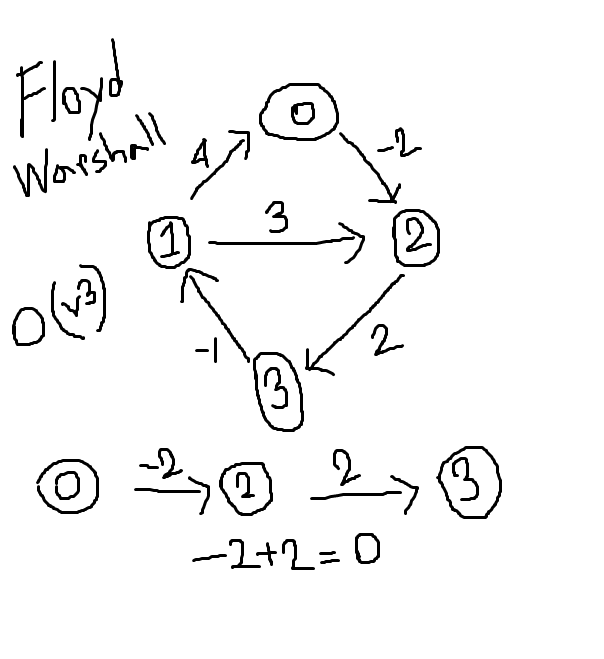 Floyd
Warshall
0
4
-2
1
3
2
O(v3)
-1
2
3
0 -2 2 2 3
-2+2=0